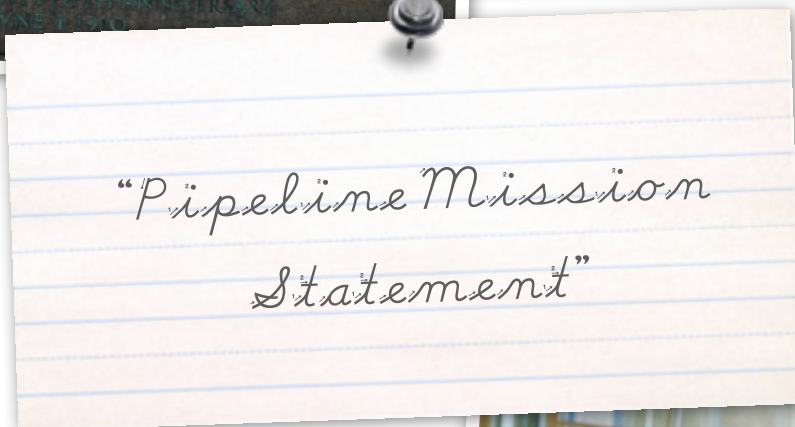 “Pipeline Mission
Statement”